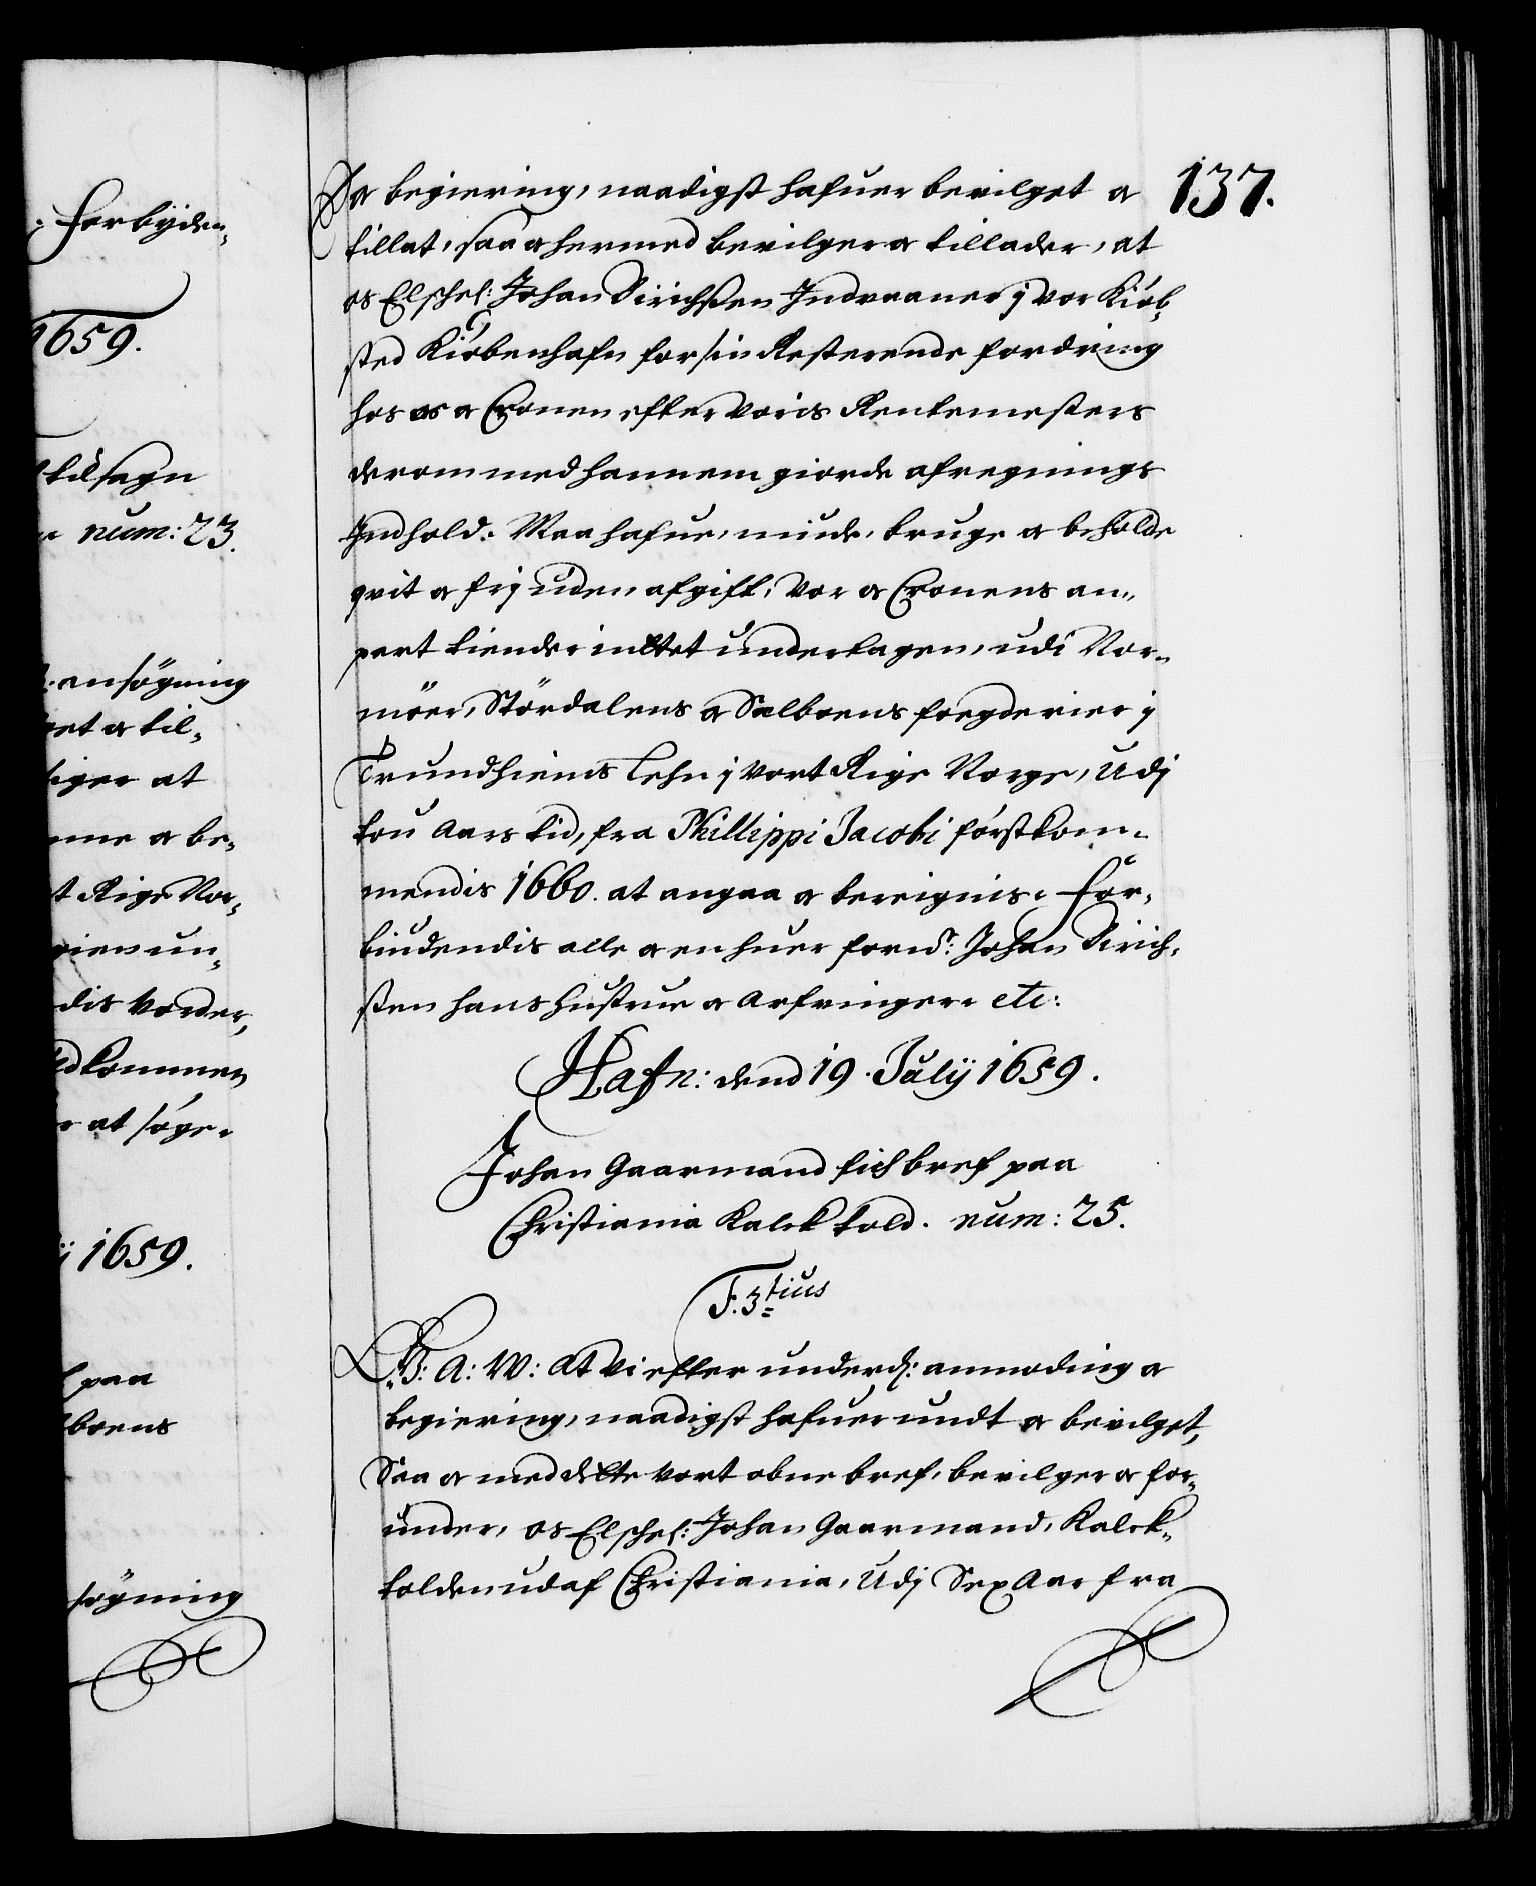 forbÿden„
1659.
tilsagn
num: 23.
ansögning
et a til„
iger at
nne a be„
t Rige Nor„
gien un„
dis Vorder„
dkommen
r at söge.
ÿ 1659.
paa
boens
söguing
137.
a begiering, naadigst hafuer bevilget a
tillat, saa a hermed bevilger a tillader, at
os Elschel: Johan Dirichsen Indvaaner j vor Kiöb„
sted Kiöbenhafn for sin Resterende fordring
hos os a Cronen efter voris Rentemesters
derom med hannem giorde afregnings
Indhold. Maa hafue, niude, bruge a beholde
qvit a frj uden afgift, Vor a Cronens an„
part tiender indtet undertagen, udi Nor„
möer, Stördalens a Selboens fogderier j
Trundhiems Lehn j vort Rige Norge, Udj
tou Aars tid, fra Phillippi Jacobi förstkom„
mendis 1660. at angaa a bereignis. for„
biudendis alle a en huer forn: Johan Dirich„
sten hans hustrue a Arfvinger. etc:
Hafn: dend 19. Julÿ 1659.
Johan Gaarmand fich bref paa
Christiania Kalck told. num: 25.
F. 3tius
G: A: W: At Vi efter underd: anmoding a
begiering, naadigst hafuer undt a bevilget,
Saa a med dette vort obne bref, bevilger a for„
under, os Elschel: Johan Gaarmand, Kalck„
tolden udaf Christiania, Udj Sex Aar fra